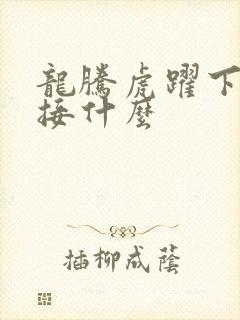 龍騰虎躍下
接什麼
插柳成蔭